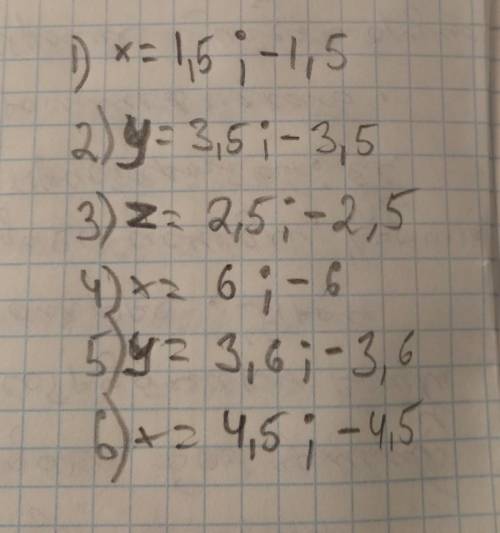 1) x = 1,5 ; - 1,5
2) y = 3,5 ; - 3,5
3) z = 2,5 ; - 2,5
4) x = 6 ; - 6
5) y = 3,6 ; - 3,6
6) x = 4,5 ; - 4,5